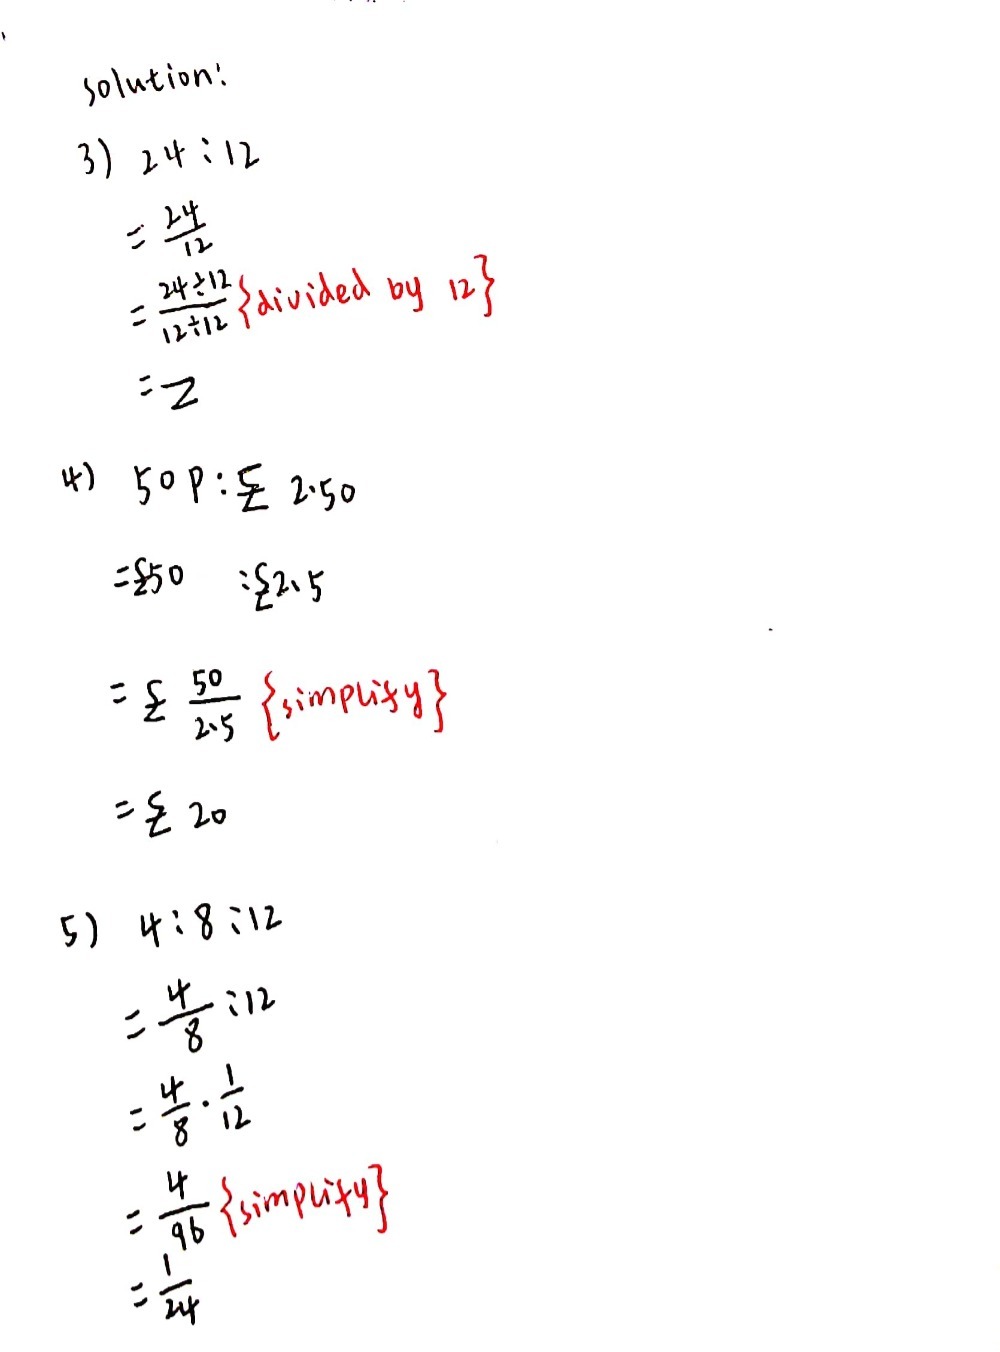 solution:
3) 24:12
= 24/12
= 24÷12/12÷12 {divided by 12}
= 2
4) 50p:£ 2.50
=£50 :£2.5
= £ 50/2.5 {simplify}
= £ 20
5) 4:8:12
= 4/8 :12
= 4/8 · 1/12
= 4/96 {simplify}
= 1/24